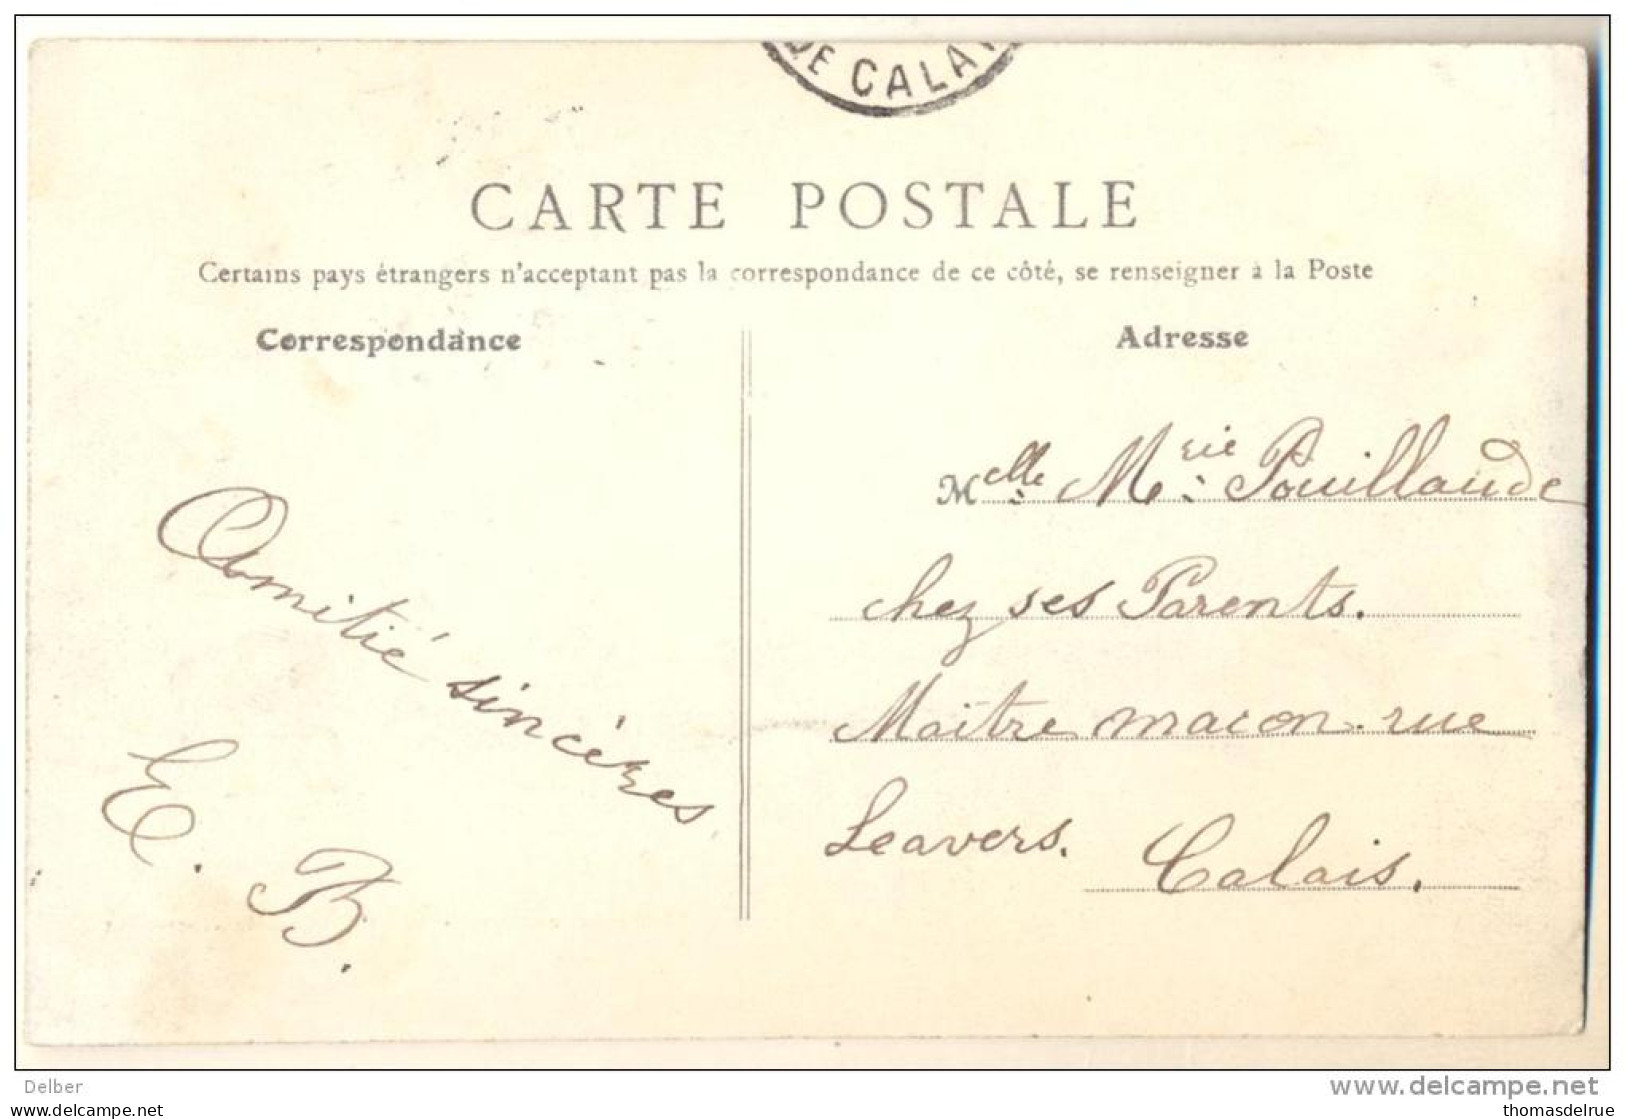 DE CALAI
CARTE POSTALE
Certains pays étrangers n'acceptant pas la correspondance de ce côté, se renseigner à la Poste
Correspondance
Adresse
Amitié sincères
E. B.
Melle Mrie Pouillaude
chez ses Parents.
Maître macon rue
Leavers. Calais.
Delber
www.delcampe.net
thomasdelrue